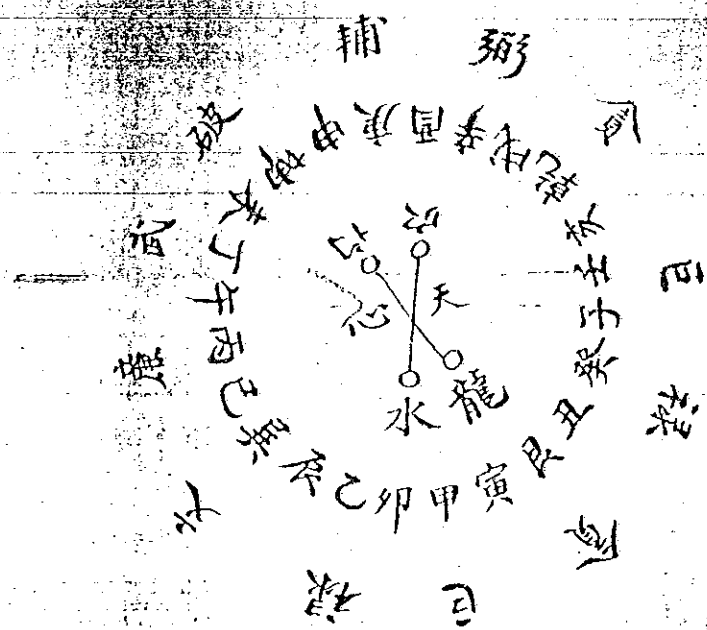 輔弼貪巨祿貪巨祿文廉武破
壬子癸丑艮寅甲卯乙辰巽巳丙午丁未坤申庚酉辛戌乾亥
穴
天心
水龍